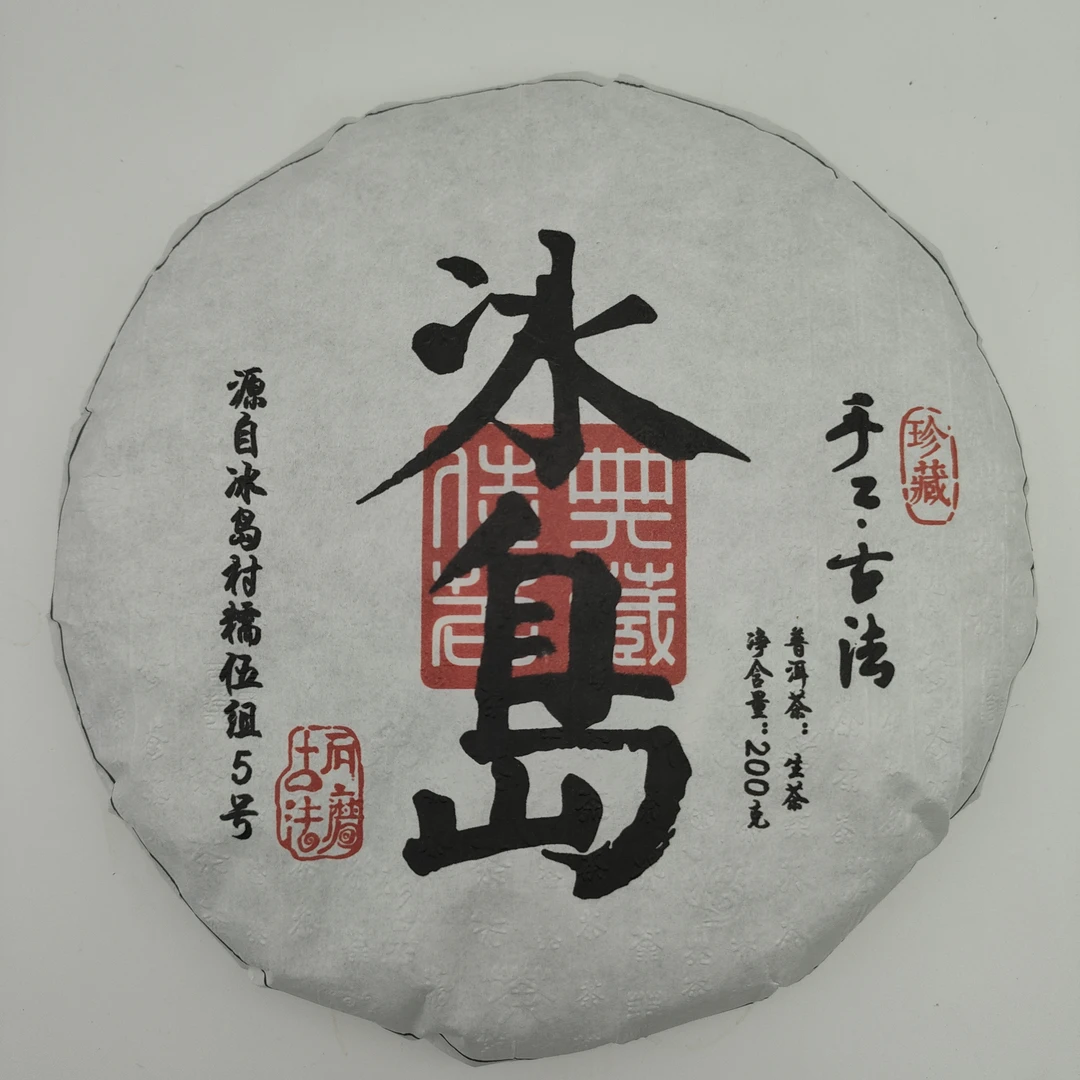 冰岛
典藏
佳茗
珍藏
手工·古法
普洱茶：生茶
净含量：200克
源自冰岛村糯伍组5号
石磨
古法